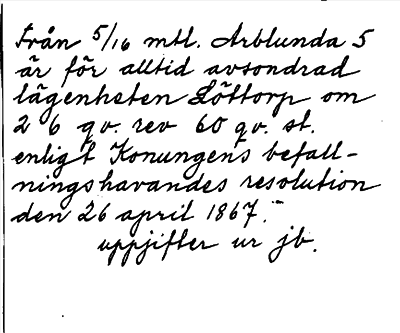 Från 5/16 mtl. Arblunda 5
är för alltid avsondrad
lägenheten Löttorp om
2 6 qv. rev 60 qv. st.
enligt Konungens befall-
ningshavandes resolution
den 26 april 1867."
uppjifter ur jb.